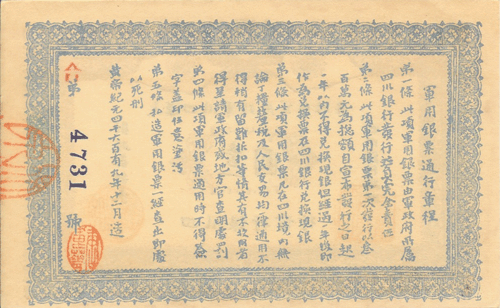 軍用銀票通行章程
第一條 此項軍用銀票由軍政府所屬
四川銀行發行並負完全責任
第二條 此項軍用銀票第一次發行以叁
百萬元為總額自宣布發行之日起
一年以內不得兌換現銀但經過一年後即
作為兌換票在四川銀行兌換現銀
第三條 此項軍用銀票凡在四川境內無
論丁糧釐稅及人民貿易均一律通用不
得稍有留難折扣等情其有不收用者
得呈請軍政府或地方官查明處罰
第四條 此項軍用銀票通用時不得
字蓋印任意塗污
第五條 私造軍用銀票一經查出即處
以死刑
黃帝紀元四千六百有九年十二月造
第 4731 號